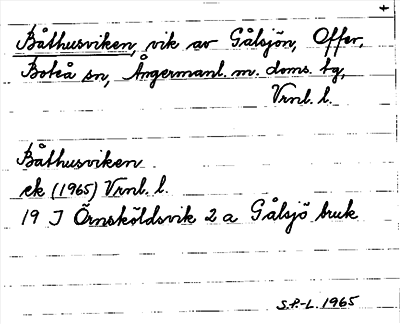 Båthusviken, vik av Gålsjön, Offer,
Boteå sn, Ångermanl. m. doms. tg,
Vrnl. l.
Båthusviken
ek (1965) Vrnl. l.
19 J Örnsköldsvik 2 a Gålsjö bruk
S.P.-L. 1965